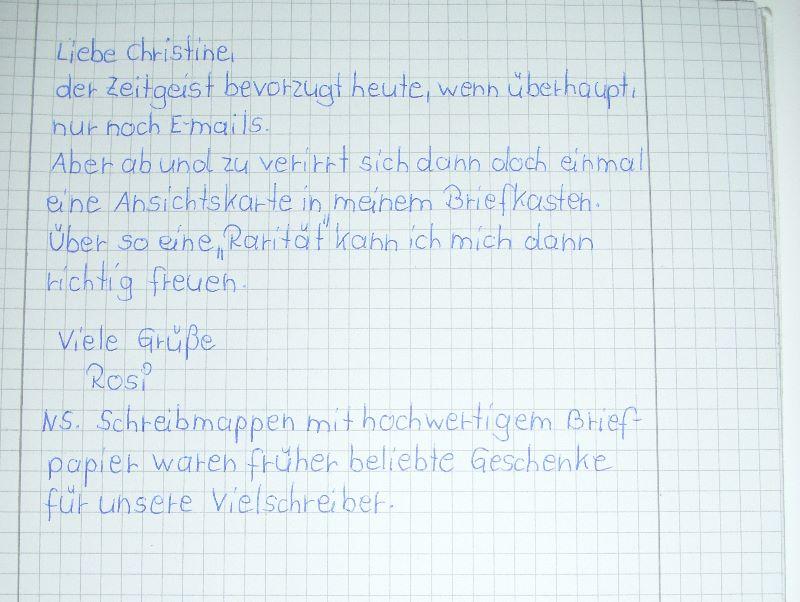 Liebe Christine,
der Zeitgeist bevorzugt heute, wenn überhaupt,
nur noch E-mails.
Aber ab und zu verirrt sich dann doch einmal
eine Ansichtskarte in meinem Briefkasten.
Über so eine „Rarität“ kann ich mich dann
richtig freuen.
Viele Grüße
Rosi
NS. Schreibmappen mit hochwertigem Brief-
papier waren früher beliebte Geschenke
für unsere Vielschreiber.